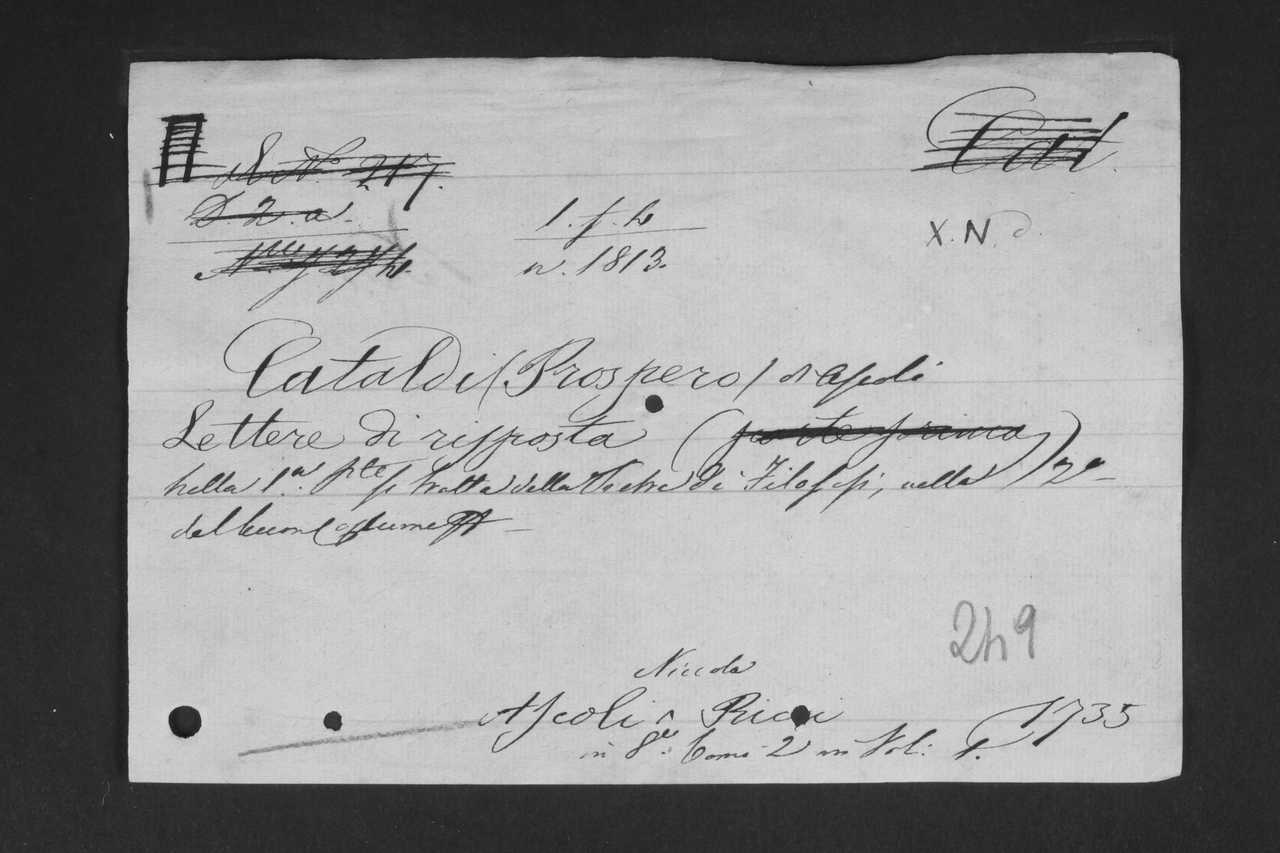 N.° 217.
Cat.
D. 2. a.
1. f. h
X. N
n. 1813.
Cataldi (Prospero) d'Ascoli
Lettere di risposta (parte prima)
nella 1.a pte si tratta della Vita de Filosofi, nella 2a
del buon Costume
249
Niccola
Ascoli ^ Ricci 1735
in 8.vo Tomi 2 in Vol. 1.